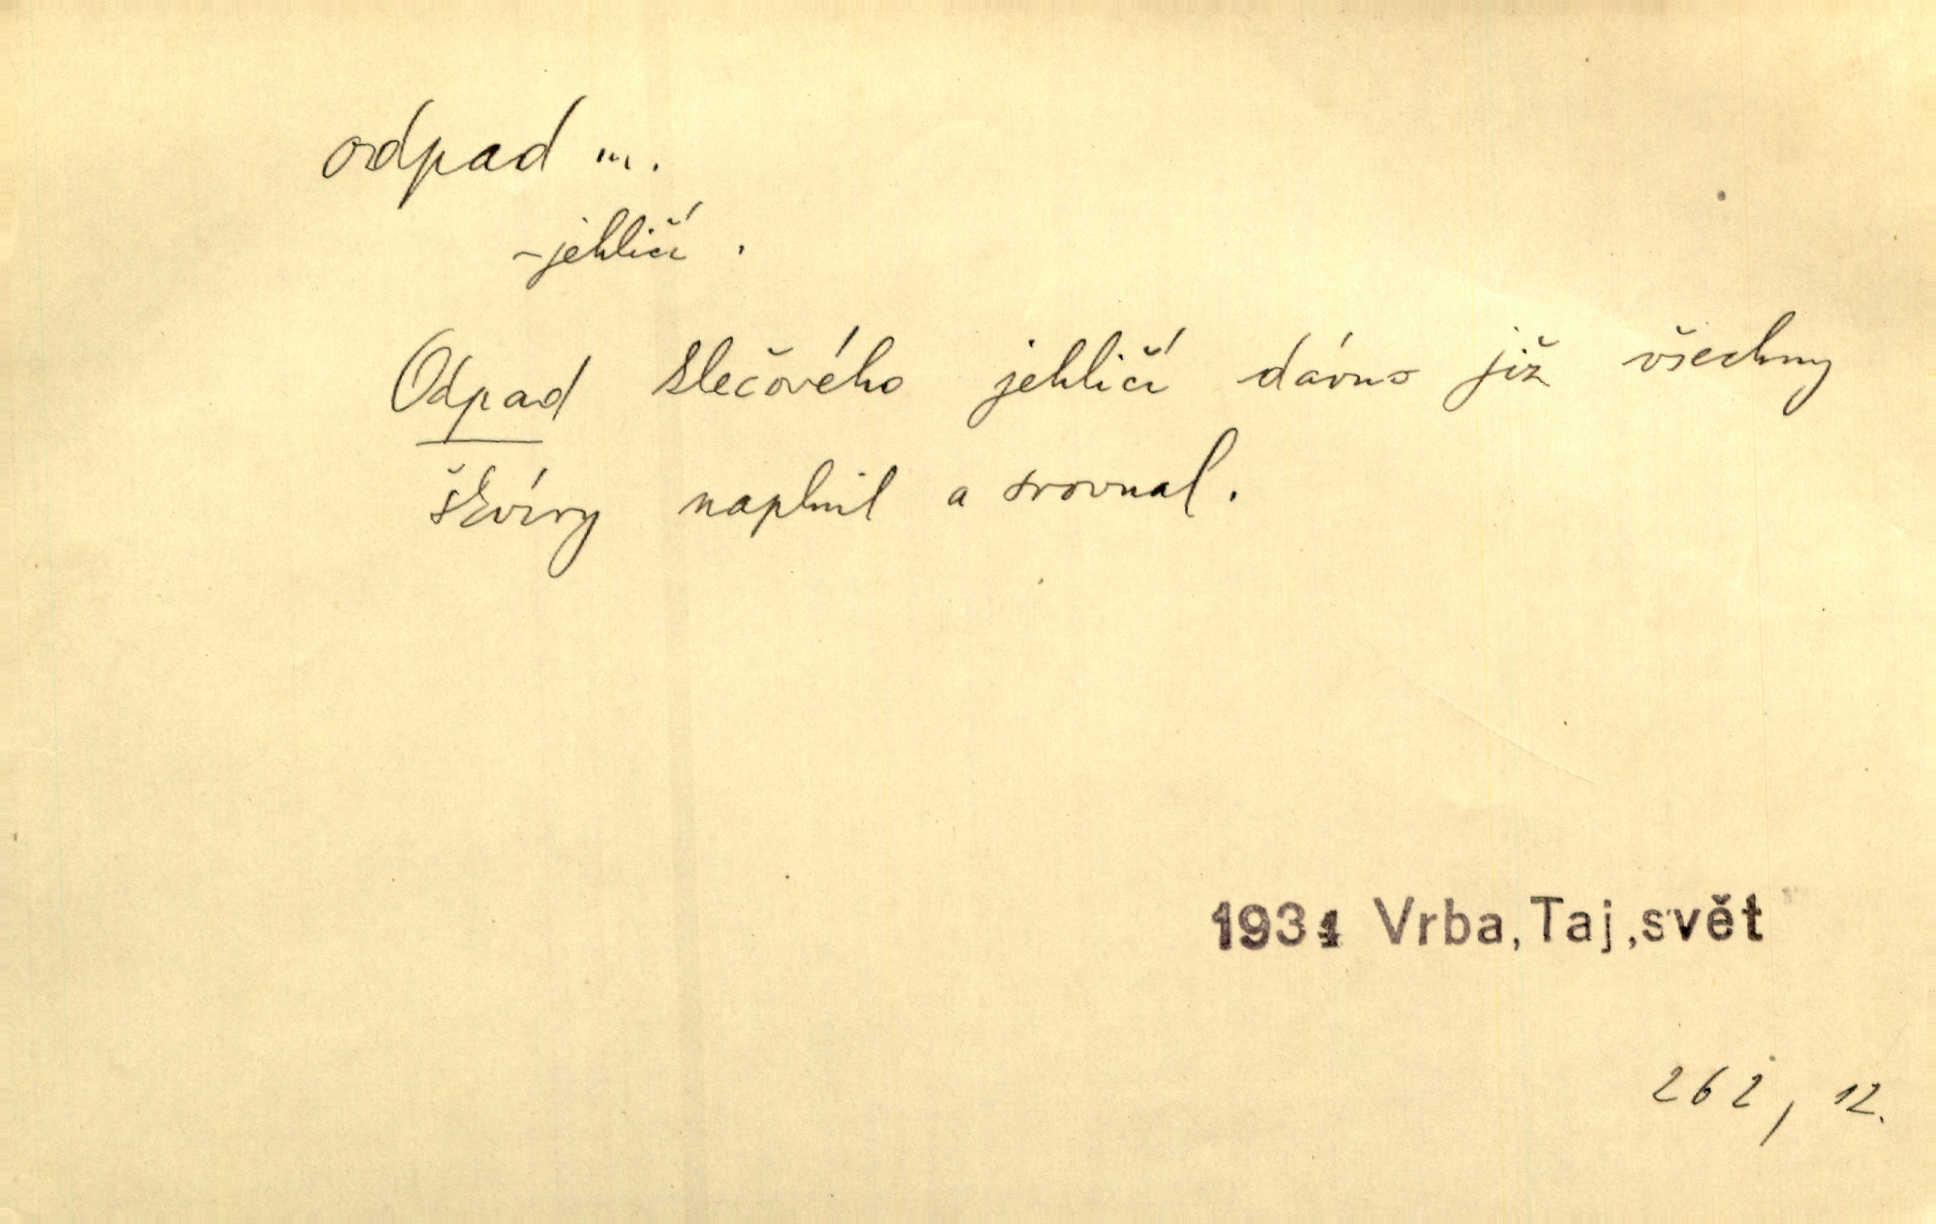 odpad m.
-jehličí.
Odpad klečového jehličí dávno již všechny
škvíry naplnil a srovnal.
1931 Vrba,Taj,svět
262, 12.